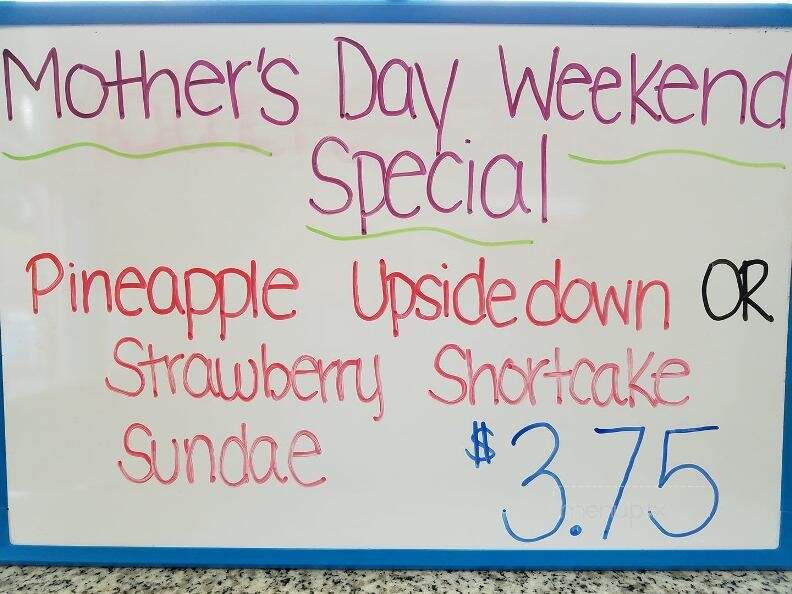 Mother's Day Weekend
Special
Pineapple Upside down OR
Strawberry Shortcake
Sundae $3.75
menupix